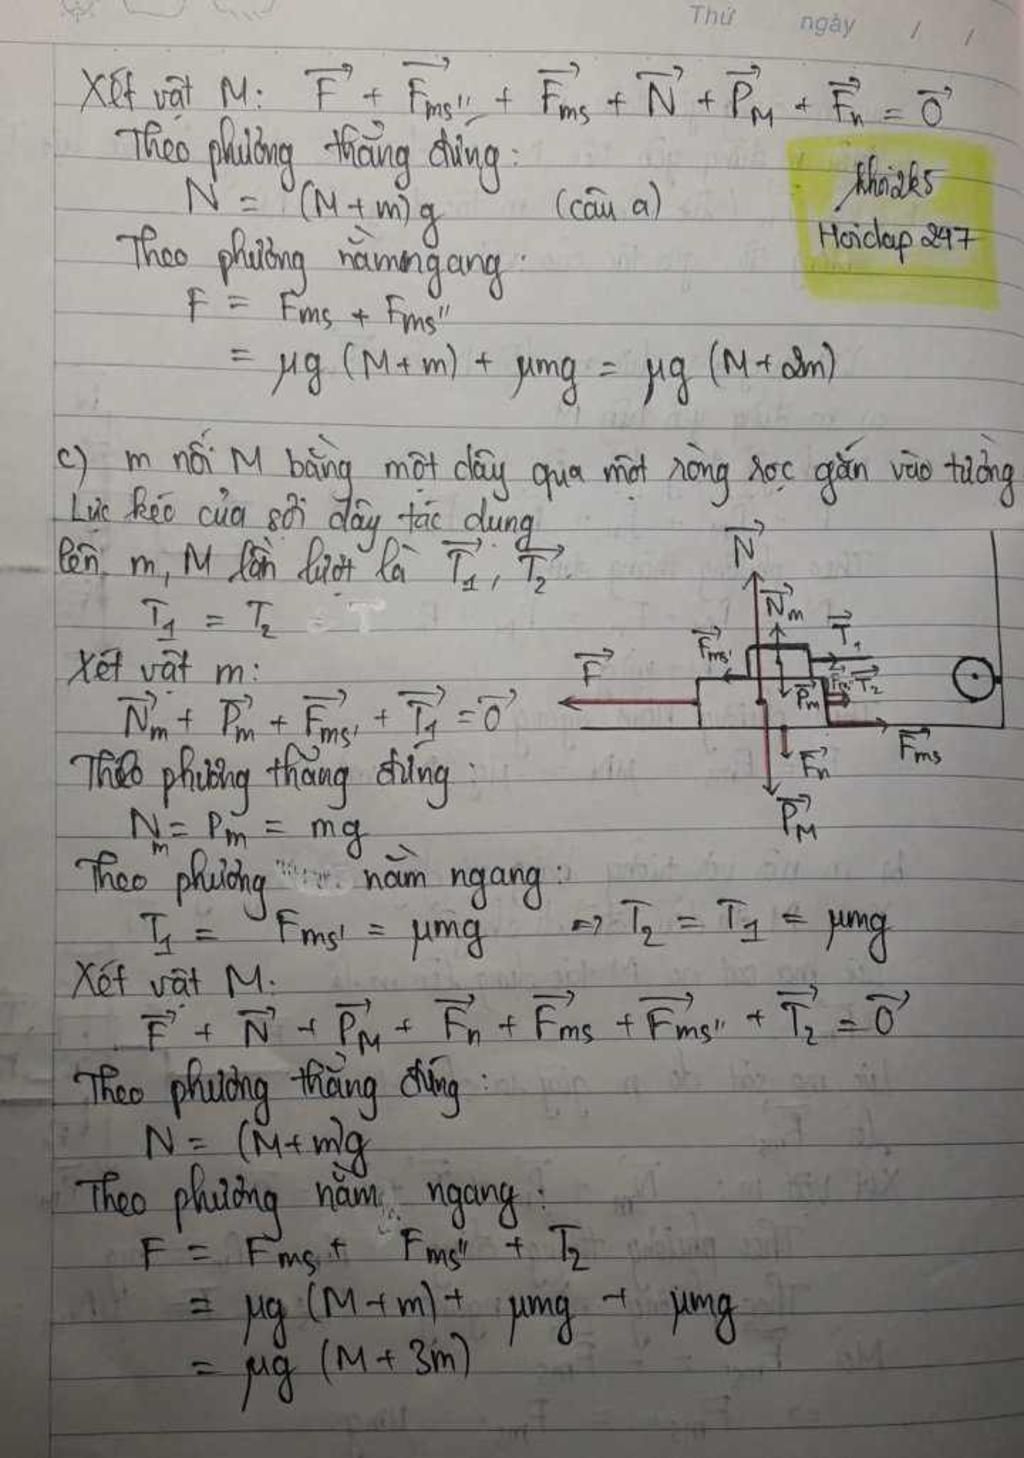 Thứ ngày / /
Xét vật M: F⃗ + F⃗ms'' + F⃗ms + N⃗ + P⃗M + F⃗n = 0⃗
Theo phương thẳng đứng:
N = (M+m)g (câu a)
khoi2k5
Hoidap 247
Theo phương nằm ngang:
F = Fms + Fms''
= μg (M+m) + μmg = μg (M+2m)
c) m nối M bằng một dây qua một ròng rọc gắn vào tường
Lực kéo của sợi dây tác dụng
lên m, M lần lượt là T⃗1, T⃗2.
T1 = T2
Xét vật m:
N⃗m + P⃗m + F⃗ms' + T⃗1 = 0⃗
Theo phương thẳng đứng:
Nm = Pm = mg
N⃗
N⃗m
T⃗1
F⃗ms'
F⃗
P⃗m
T⃗2
F⃗ms
F⃗n
P⃗M
Theo phương nằm ngang:
T1 = Fms' = μmg => T2 = T1 = μmg
Xét vật M:
F⃗ + N⃗ + P⃗M + F⃗n + F⃗ms + F⃗ms'' + T⃗2 = 0⃗
Theo phương thẳng đứng:
N = (M+m)g
Theo phương nằm ngang:
F = Fms + Fms'' + T2
= μg (M+m) + μmg + μmg
= μg (M+3m)